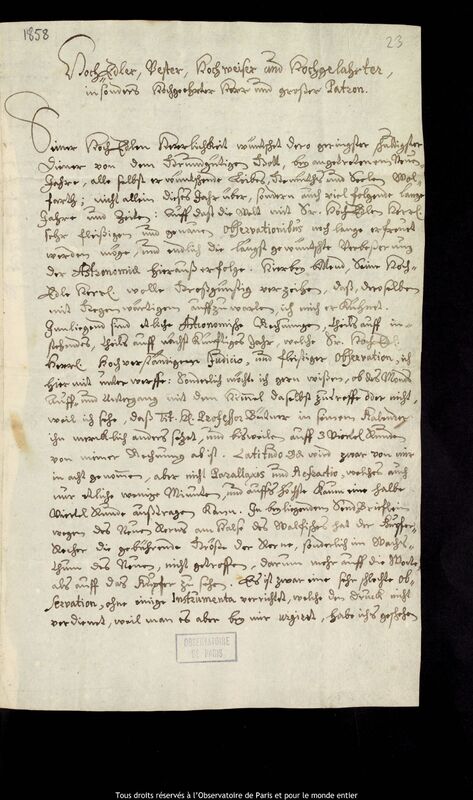 1858
23
Hoch Edler, Vester, Hochweiser und Hochgelahrter,
insonders Hochgeehrter Herr und großer Patron.
Seiner HochEdlen Herrlichkeit wünschet dero geringster
Diener von dem Grundgütigen Gott, bey angetretenem Neuen
Jahre, alle selbst erwünschende Leibes, Gemüthes und Seelen Wol-
farth; nicht allein dieses Jahr über, sondern auch viel folgende lange
Jahre und Zeiten: Auff daß die Welt mit Sr. HochEdlen Herrl.
sehr fleißigen und genauen Observationibus noch lange erfreuet
werden möge, und endlich die längst gewünschte Verbeßerung
der Astronomia hierauß erfolge. Hierbey bittend, Seine Hoch-
Edle Herrl. wolle Großgünstig verzeihen, daß deroselben
mit Gegenwärtigen auffzuwarten, ich mich erkühnet.
Inliegend sind etliche Astronomische Rechnungen, theils auff in-
stehendes, theils auff nechst künfftiges Jahr, welche Sr. HochEdl.
Herrl. Hochverständigem Judicio, und fleißiger Observation, ich
hiermit unterwerffe: Sonderlich möchte ich gern wißen, ob des Monds
Auff und Untergang mit dem Himmel daselbst zutreffe oder nicht
weil ich sehe, daß Tit. H. Professor Bütner in seinem Kalender
ihn mercklich anders setzet, und bisweilen auff 3 Viertel Stunden
von meiner Rechnung ab ist. Latitudo wird zwar von mir
in acht genommen, aber nicht Parallaxis und Refractio, welches auch
nur etliche wenige Minuten, und auffs höchste kaum eine halbe
Viertel Stunde außtragen kann. In beyliegendem SendBrieflein
wegen des Neuen Sterns am Halse des Wallfisches hat der Kupfer-
Stecher die gebührende Größe der Sterne, sonderlich im Wachs-
thum des Neuen, nicht getroffen, darum mehr auff die Worte,
als auff das Kupffer zu sehen. Es ist zwar eine sehr schlechte Ob-
servation, ohne einige Instrumenta verrichtet, welche den Druck nicht
verdienet, weil man es aber bey mir urgiret, habe ichs geschehen
OBSERVATOIRE
DE PARIS
Tous droits réservés à l'Observatoire de Paris et pour le monde entier